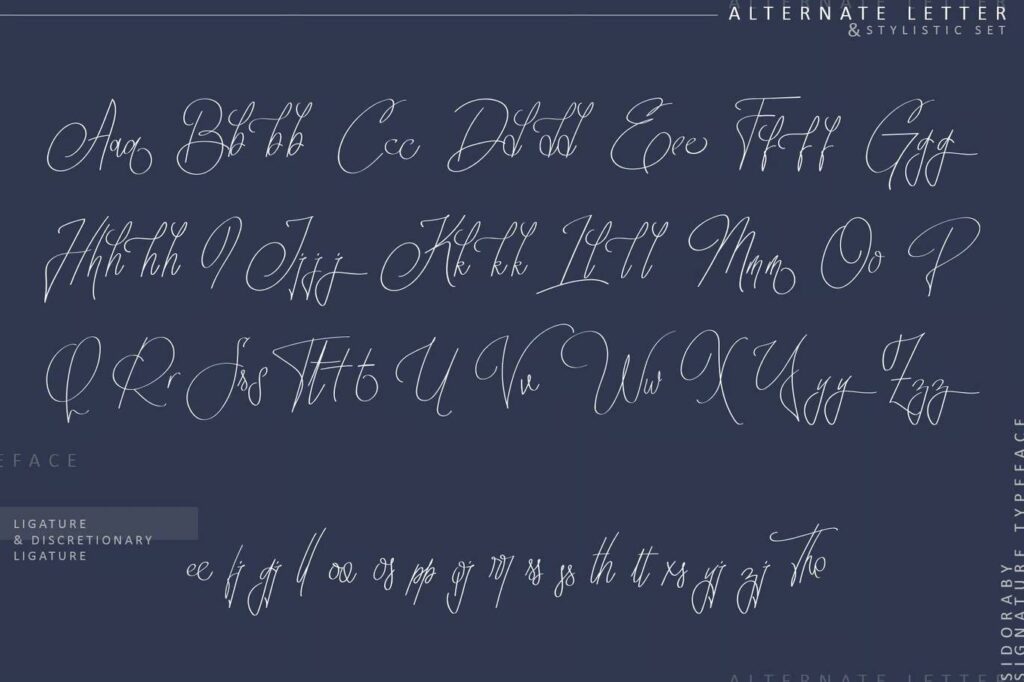 ALTERNATE LETTER
& STYLISTIC SET
Aaa Bbbb Ccc Dddd Eee Ffff Ggg
Hhhhh I Jjjj Kkkk Llll Mmm Oo P
Q Rr Sss Tttt U Vv Ww X Yyy Zzz
EFACE
LIGATURE
& DISCRETIONARY
LIGATURE
ee fj gj ll oo os pp qj rr ss ss th tt xs yj zj The
SIDORABY
SIGNATURE TYPEFACE
ALTERNATE LETTER